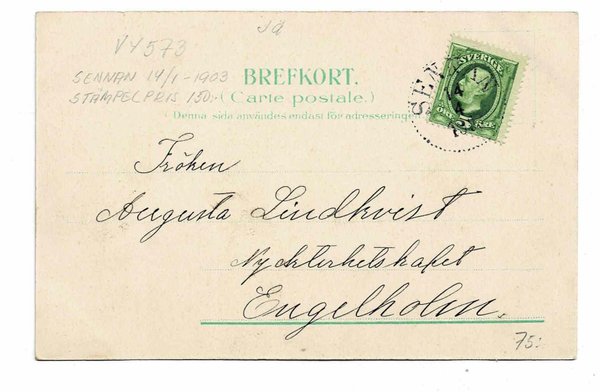 Ja
VY573
SENNAN 14/1-1903
STÄMPELPRIS 150:-
BREFKORT.
(Carte postale.)
Denna sida användes endast för adresseringen
SVERIGE
5
ÖRE
SENNAN
Fröken
Augusta Lindkvist
Nyckterhetskafeet
Engelholm.
75: